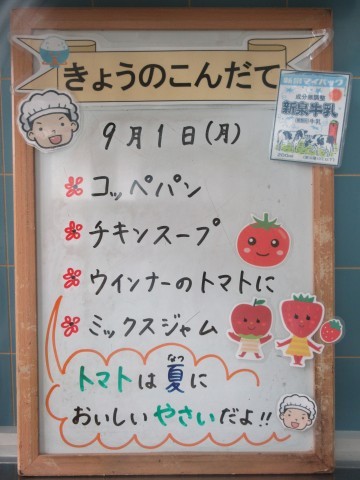 きょうのこんだて
9月1日(月)
コッペパン
チキンスープ
ウインナーのトマトに
ミックスジャム
トマトは夏に
なつ
おいしいやさいだよ!!
成分無調整
新泉牛乳